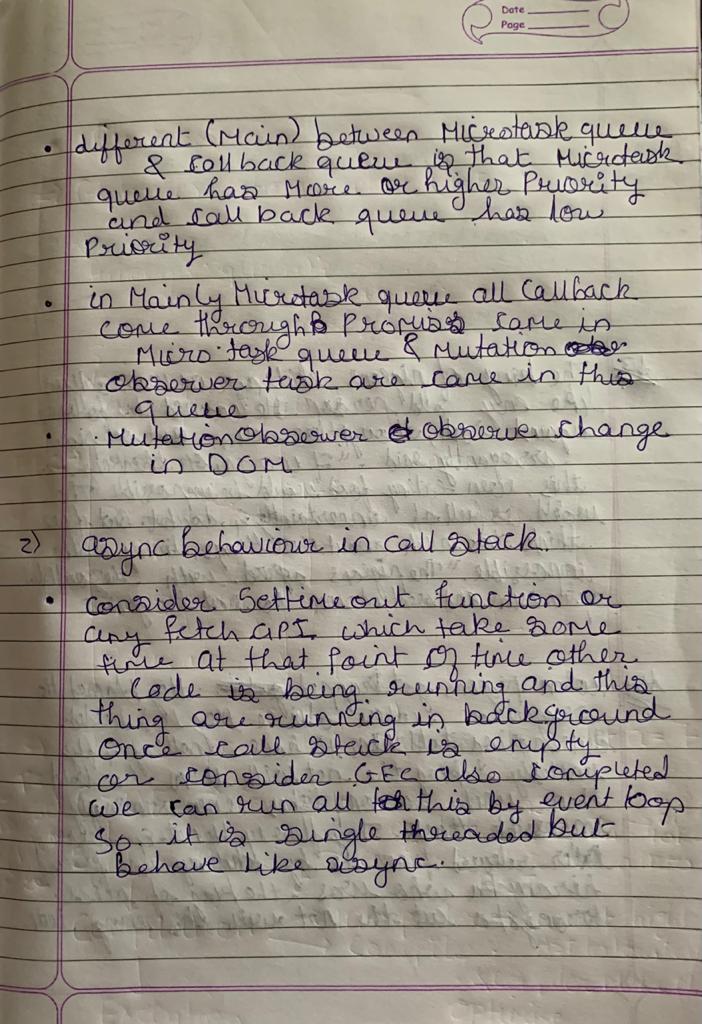 Date
Page
• different (Main) between Microtask queue
& callback queue is that Microtask
queue has More or higher Priority
and call back queue has low
Priority
• in Mainly Microtask queue all Callback
come through Promises came in
Micro task queue & Mutation
observer task are came in this
queue
• MutationObserver observe change
in DOM
2) async behaviour in call stack.
• Consider Settimeout function or
any fetch API which take some
time at that point of time other
code is being running and this
thing are running in background
Once call stack is empty
or consider GEC also completed
we can run all this by event loop
So it is single threaded but
behave like async.